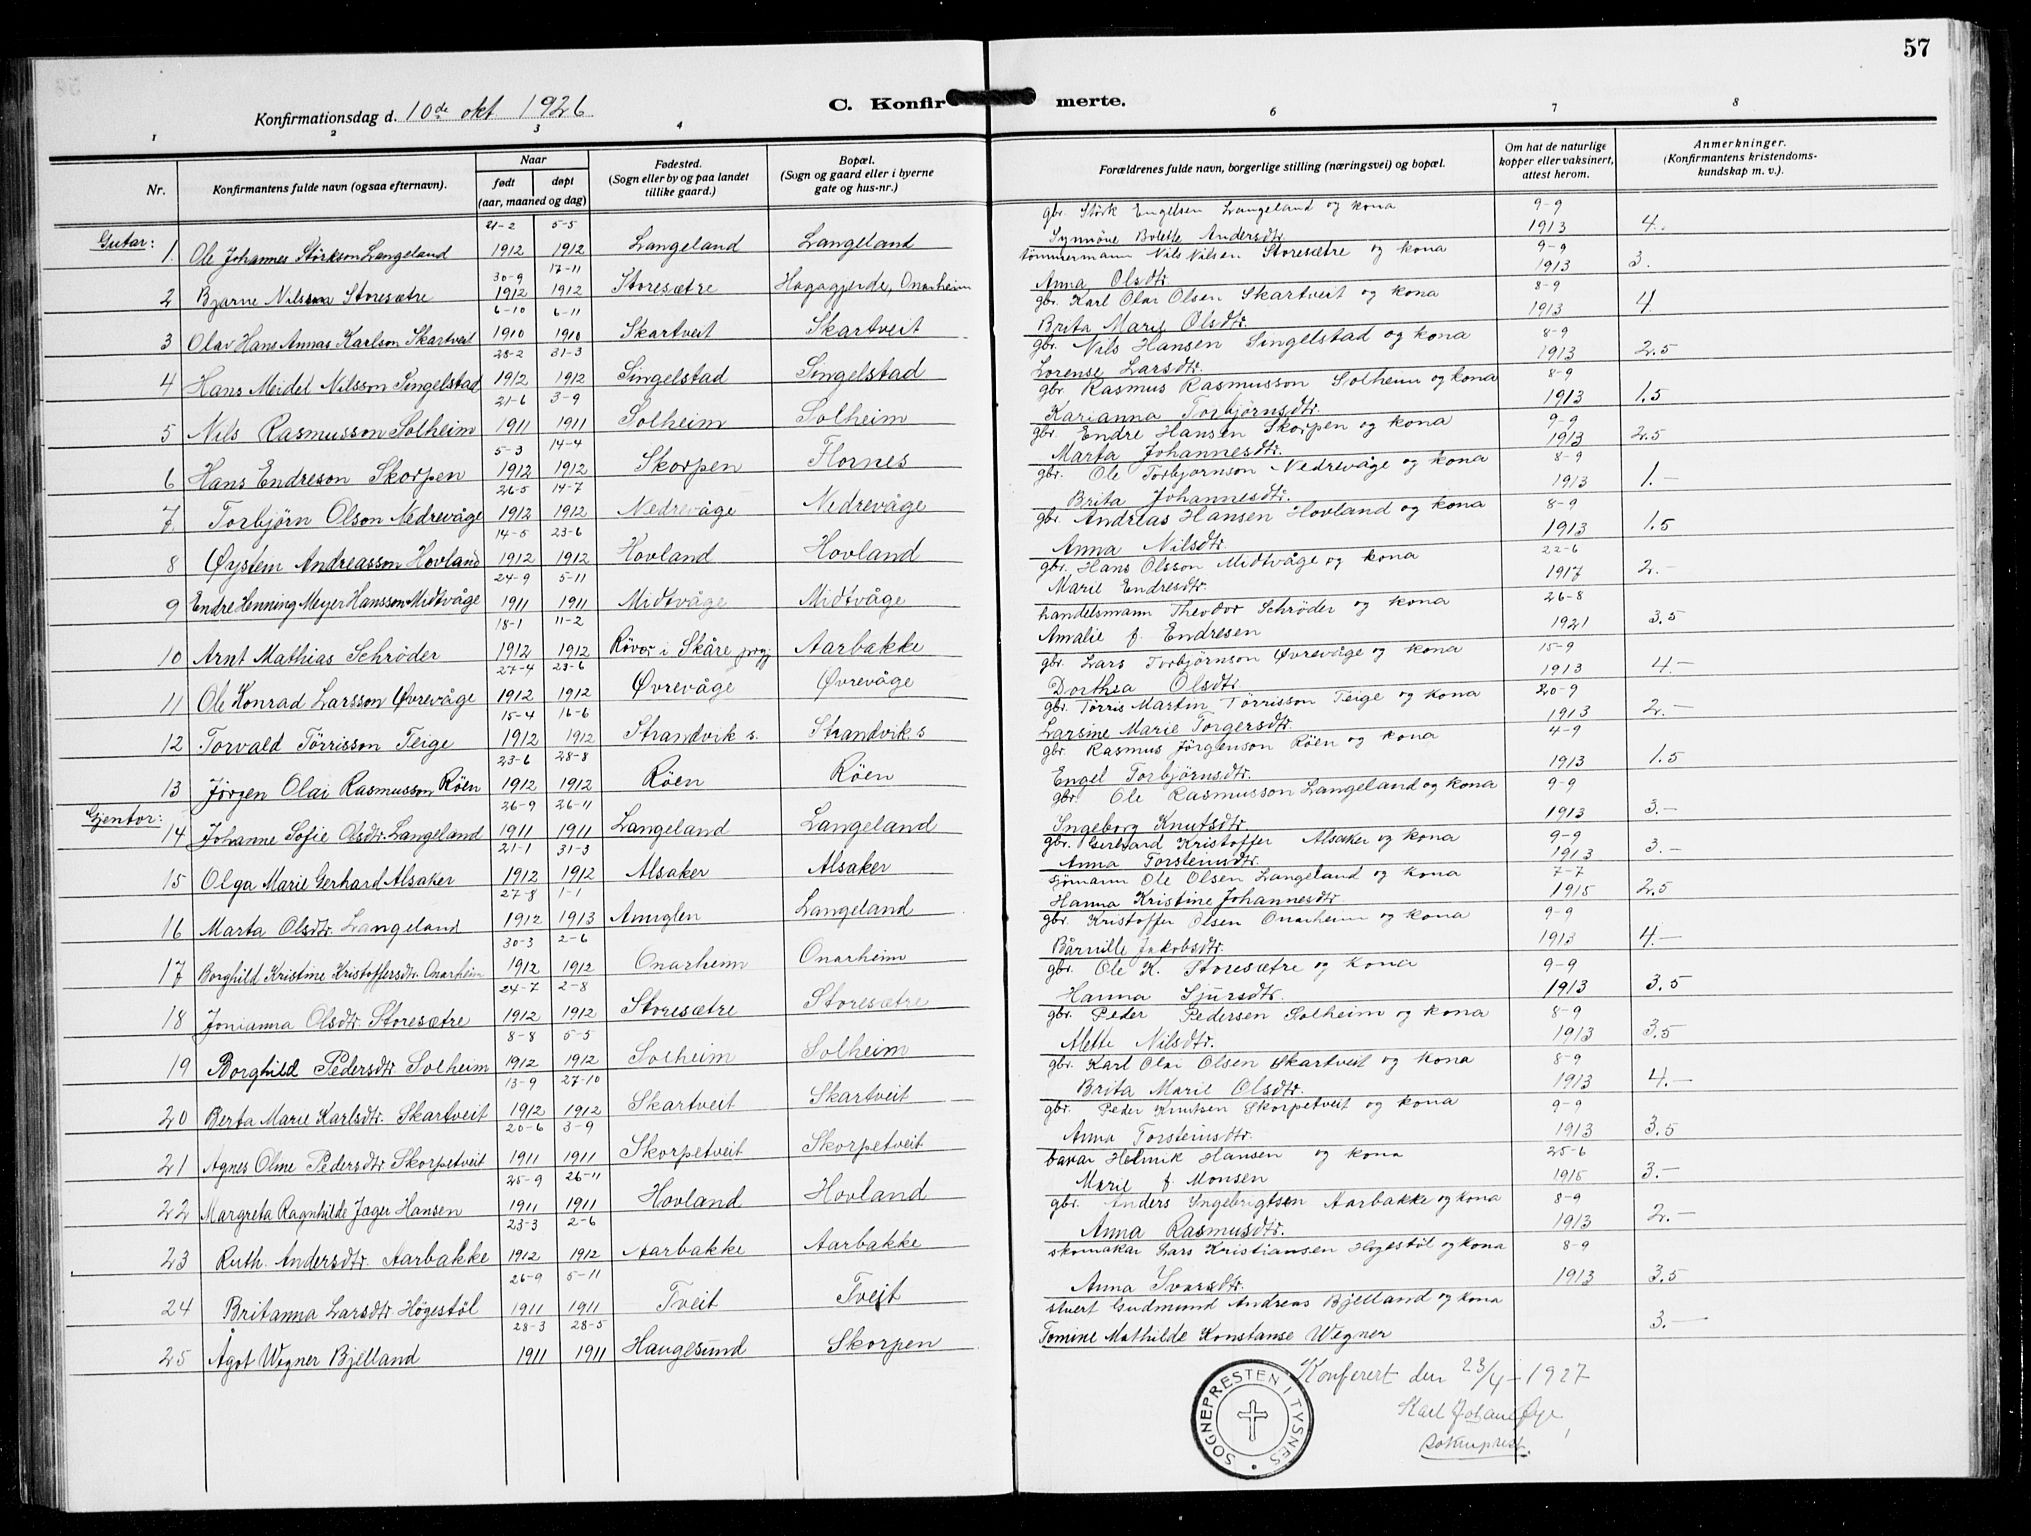 57
Konfirmationsdag d. 10de okt 1926
C. Konfirmerte.
1 2 3 4 6 7 8
Nr.
Konfirmantens fulde navn (ogsaa efternavn).
Naar
født døpt
(aar, maaned og dag)
Fødested.
(Sogn eller by og paa landet
tillike gaard.)
Bopæl.
(Sogn og gaard eller i byerne
gate og hus-nr.)
Forældrenes fulde navn, borgerlige stilling (næringsvei) og bopæl.
Om hat de naturlige
kopper eller vaksinert,
attest herom.
Anmerkninger.
(Konfirmantens kristendoms-
kundskap m. v.).
Gutar:
21-2 5-5 gbr. Störk Engelsen Langeland og kona 9-9
1. Ole Johannes Störkson Langeland 1912 1912 Langeland Langeland Synnöve Bolette Andersdtr. 1913 4.
30-9 17-11 tömmermann Nils Nilsen Storesætre og kona 9-9
2 Bjarne Nilsson Storesætre 1912 1912 Storesætre Hagagjerde, Onarheim Anna Olsdtr. 1913 3.
6-10 6-11 gbr. Karl Olai Olsen Skartveit og kona 8-9
3 Olav Hans Annas Karlson Skartveit 1910 1910 Skartveit Skartveit Brita Marie Olsdtr. 1913 4.
28-2 31-3 gbr. Nils Hansen Singelstad og kona 8-9
4 Hans Meidel Nilsson Singelstad 1912 1912 Singelstad Singelstad Lorense Larsdtr. 1913 2.5
21-6 3-9 gbr. Rasmus Rasmusson Solheim og kona 8-9
5 Nils Rasmusson Solheim 1911 1911 Solheim Solheim Karianna Torbjörnsdtr. 1913 1.5
5-3 14-4 gbr. Endre Hansen Skorpen og kona 9-9
6 Hans Endreson Skorpen 1912 1912 Skorpen Flornes Marta Johannesdtr. 1913 2.5
26-5 14-7 gbr. Ole Torbjörnson Nedrevåge og kona 8-9
7 Torbjörn Olson Nedrevåge 1912 1912 Nedrevåge Nedrevåge Brita Johannesdtr. 1913 1.-
14-5 23-6 gbr. Andreas Hansen Hovland og kona 8-9
8 Øystein Andreasson Hovland 1912 1912 Hovland Hovland Anna Nilsdtr. 1913 1.5
24-9 5-11 gbr. Hans Olsson Midtvåge og kona 22-6
9 Endre Henning Meyer Hansson Midtvåge 1911 1911 Midtvåge Midtvåge Marie Endresdtr. 1917 2.-
18-1 11-2 handelsmann Theodor Schröder og kona 26-8
10 Arnt Mathias Schröder 1912 1912 Röver i Skåre prgj Aarbakke Amalie f. Endresen 1921 3.5
27-4 23-6 gbr. Lars Torbjörnson Øvrevåge og kona 15-9
11 Ole Konrad Larsson Øvrevåge 1912 1912 Øvrevåge Øvrevåge Dorthea Olsdtr. 1913 4.-
15-4 16-6 gbr. Törris Martin Törrisson Teige og kona 20-9
12 Torvald Törrisson Teige 1912 1912 Strandvik s. Strandvik s Larsine Marie Torgersdtr. 1913 2.-
23-6 28-8 gbr. Rasmus Jörgenson Röen og kona 4-9
13 Jörgen Olai Rasmusson Röen 1912 1912 Röen Röen Engel Torbjörnsdtr. 1913 1.5
Gjentor:
26-9 26-11 gbr. Ole Rasmusson Langeland og kona 9-9
14 Johanne Sofie Olsdtr. Langeland 1911 1911 Langeland Langeland Ingeborg Knutsdtr. 1913 3.-
21-1 31-3 gbr. Gerhard Kristoffer Alsaker og kona 9-9
15 Olga Marie Gerhard Alsaker 1912 1912 Alsaker Alsaker Anna Torsteinsdtr. 1913 3.-
27-8 1-1 sjömann Ole Olsen Langeland og kona 7-7
16 Marta Olsdtr. Langeland 1912 1913 Anuglen Langeland Hanna Kristine Johannesdtr. 1915 2.5
30-3 2-6 gbr. Kristoffer Olsen Onarheim og kona 9-9
17 Borghild Kristine Kristoffersdtr. Onarheim 1912 1912 Onarheim Onarheim Bårnille Jakobsdtr. 1913 4.-
24-7 2-8 gbr. Ole K. Storesætre og kona 9-9
18 Jonianna Olsdtr. Storesætre 1912 1912 Storesætre Storesætre Hanna Sjursdtr. 1913 3.5
8-8 5-5 gbr. Peder Pedersen Solheim og kona 8-9
19 Borghild Pedersdtr. Solheim 1912 1912 Solheim Solheim Alette Nilsdtr. 1913 3.5
13-9 27-10 gbr. Karl Olai Olsen Skartveit og kona 8-9
20 Berta Marie Karlsdtr. Skartveit 1912 1912 Skartveit Skartveit Brita Marie Olsdtr. 1913 4.-
20-6 3-9 gbr. Peder Knutsen Skorpetveit og kona 9-9
21 Agnes Oline Pedersdtr Skorpetveit 1911 1911 Skorpetveit Skorpetveit Anna Torsteinsdtr. 1913 3.5
25-9 26-11 bakar Henrik Hansen og kona 25-6
22 Margreta Ragnhilde Jæger Hansen 1911 1911 Hovland Hovland Marie f. Monsen 1915 3.-
23-3 2-6 gbr. Anders Ingebrigtsen Aarbakke og kona 8-9
23 Ruth Andersdtr. Aarbakke 1912 1912 Aarbakke Aarbakke Anna Rasmusdtr. 1913 2.-
26-9 5-11 skomakar Lars Kristiansen Högestöl og kona 8-9
24 Britanna Larsdtr Högestöl 1911 1911 Tveit Tveit Anna Ivarsdtr. 1913 3.5
28-3 28-5 stuert Gudmund Andreas Bjelland og kona
25 Ågot Wegner Bjelland 1911 1911 Haugesund Skorpen Tomine Mathilde Konstanse Wegner 3.-
Konferert den 23/4-1927
Karl Johan Øye
sokneprest.
SOGNEPRESTEN I TYSNES